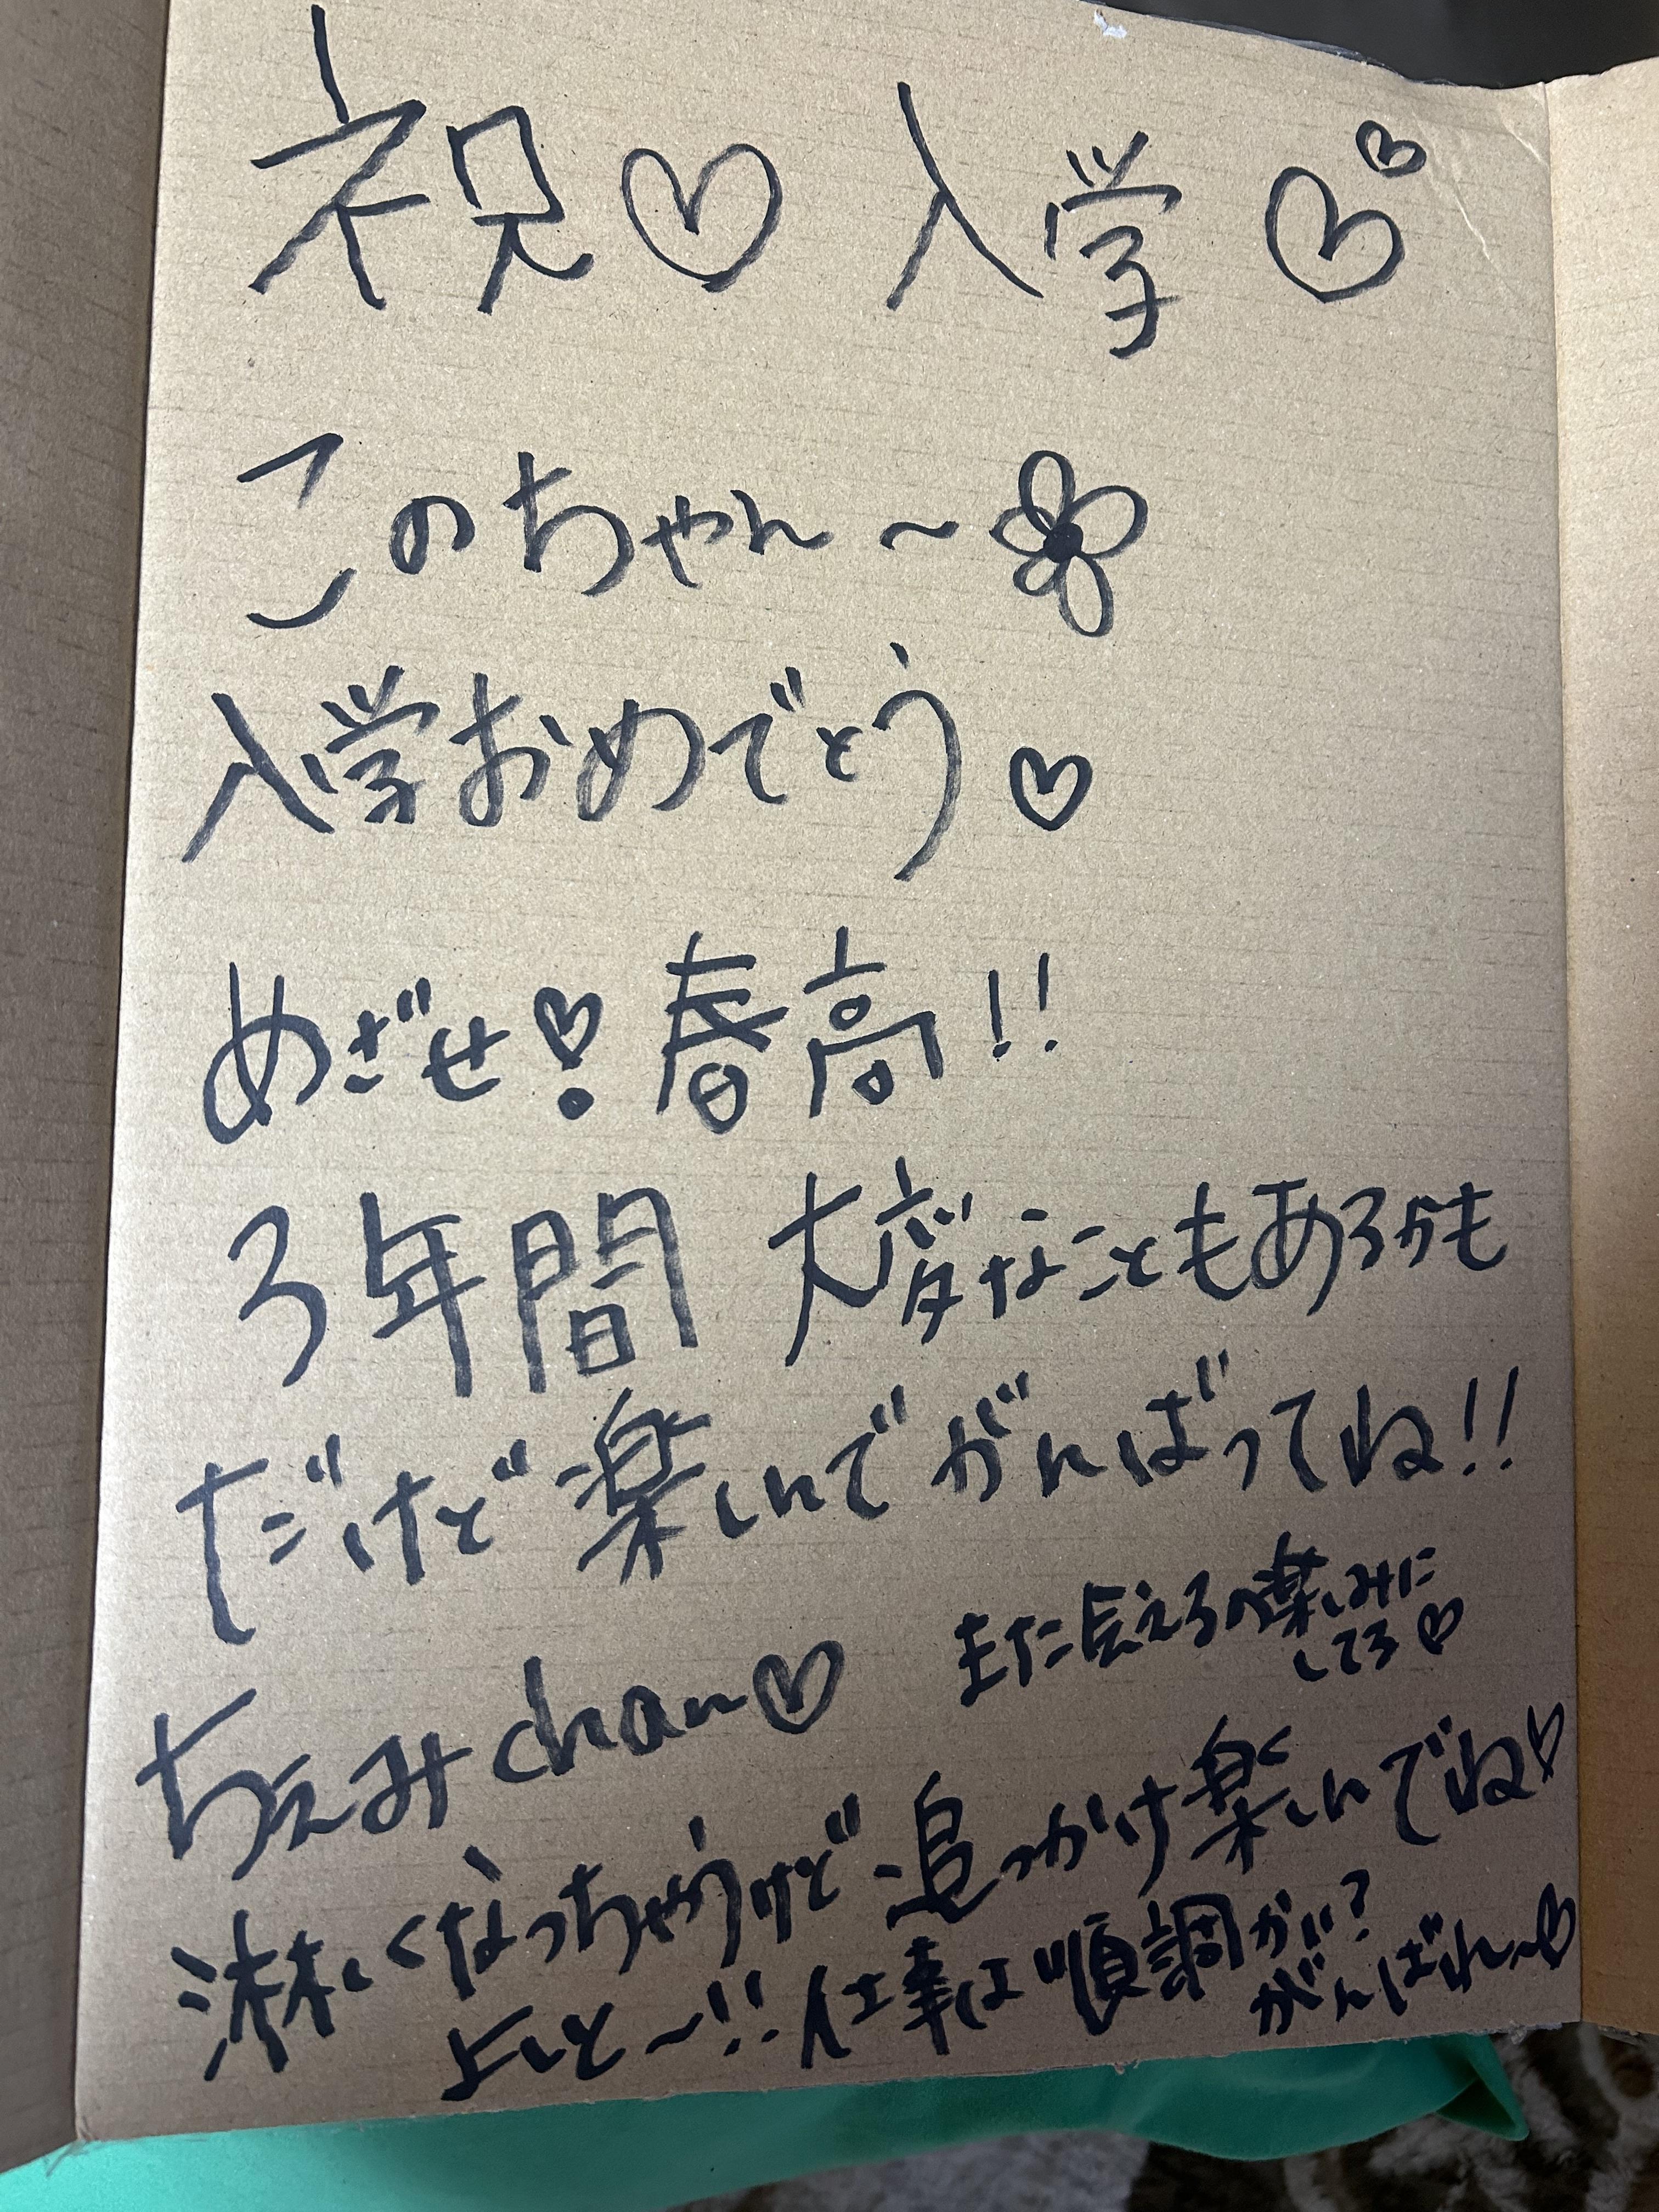 祝♡ 入学♡♡
このちゃん～
入学おめでとう♡
めざせ！春高!!
3年間 大変なこともあるかも
だけど楽しんでがんばってね!!
また会えるの楽しみに
してる♡
ちえみchan♡
淋しくなっちゃうけど追っかけ楽しんでね♡
よしと～!! 仕事は順調かい?
がんばれ～♡